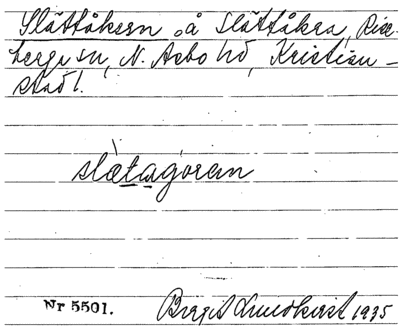 Slättåkern på Slättåkra, Rise-
berga sn, N. Åsbo hd, Kristian-
stad l.
slætagoran
Nr 5501. Birgit Lundkvist 1935